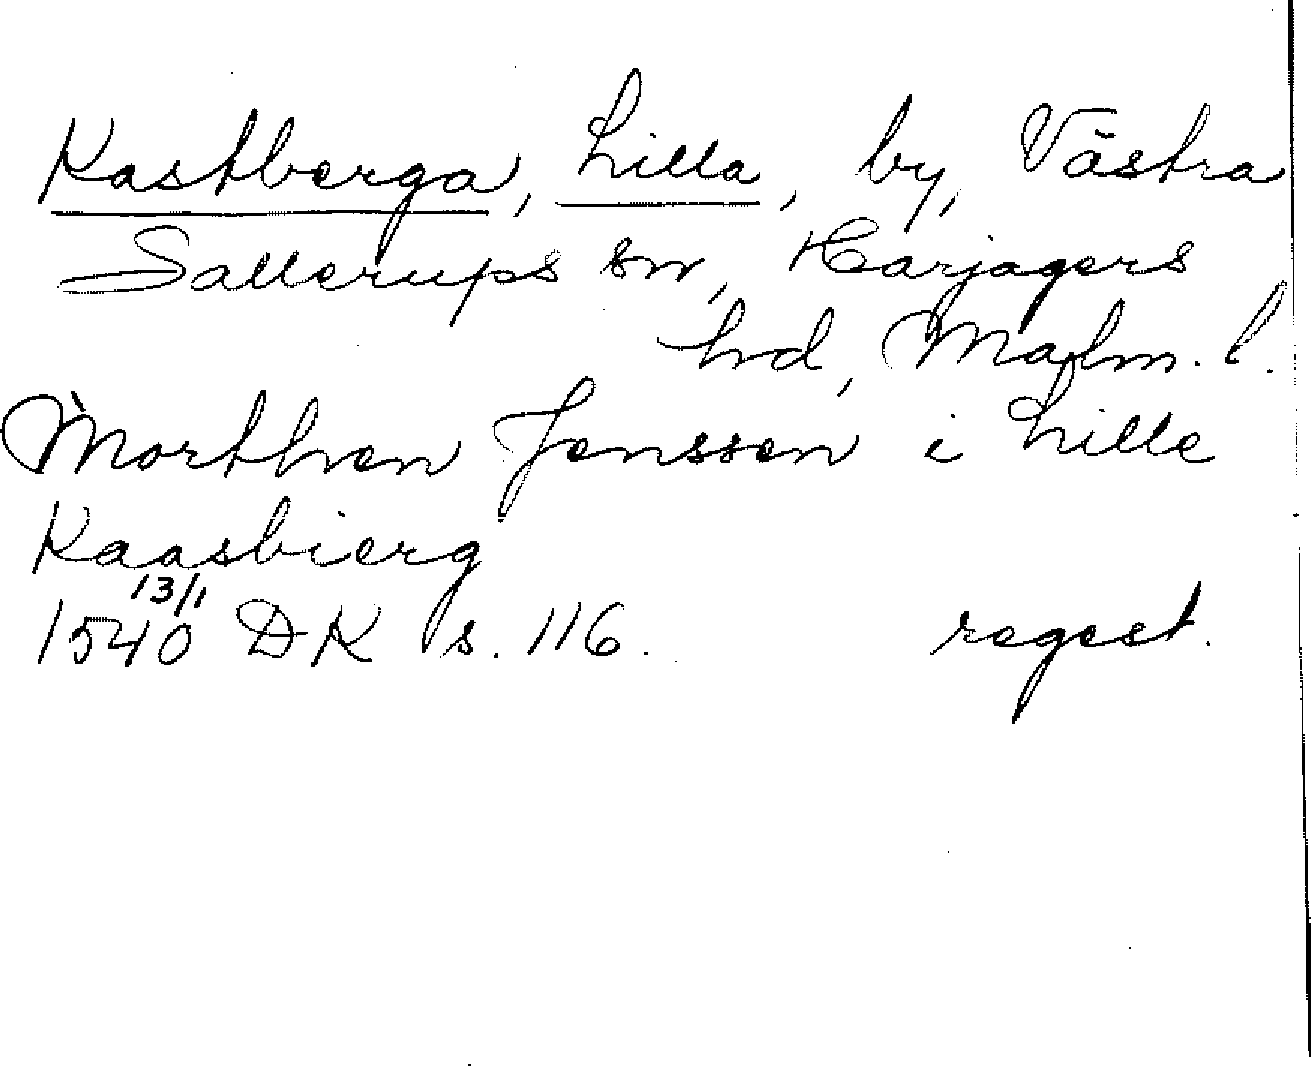 Kastberga, Lilla, by, Västra
Sallerups sn, Harjagers
hd, Malm. l.
Morthen Jenssen i Lille
Kaasbierg
13/1
1540 DK s. 116. regest.